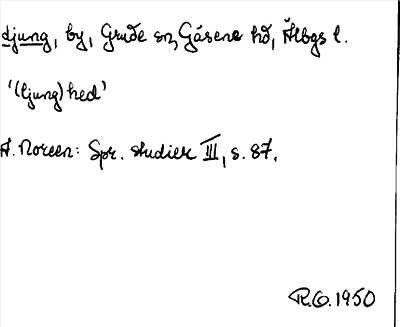 djung, by, Grude sn, Gäsene hd, Älbgs l.
'(ljung)hed'
A. Noreen: Spr. studier III, s. 87.
R.O. 1950